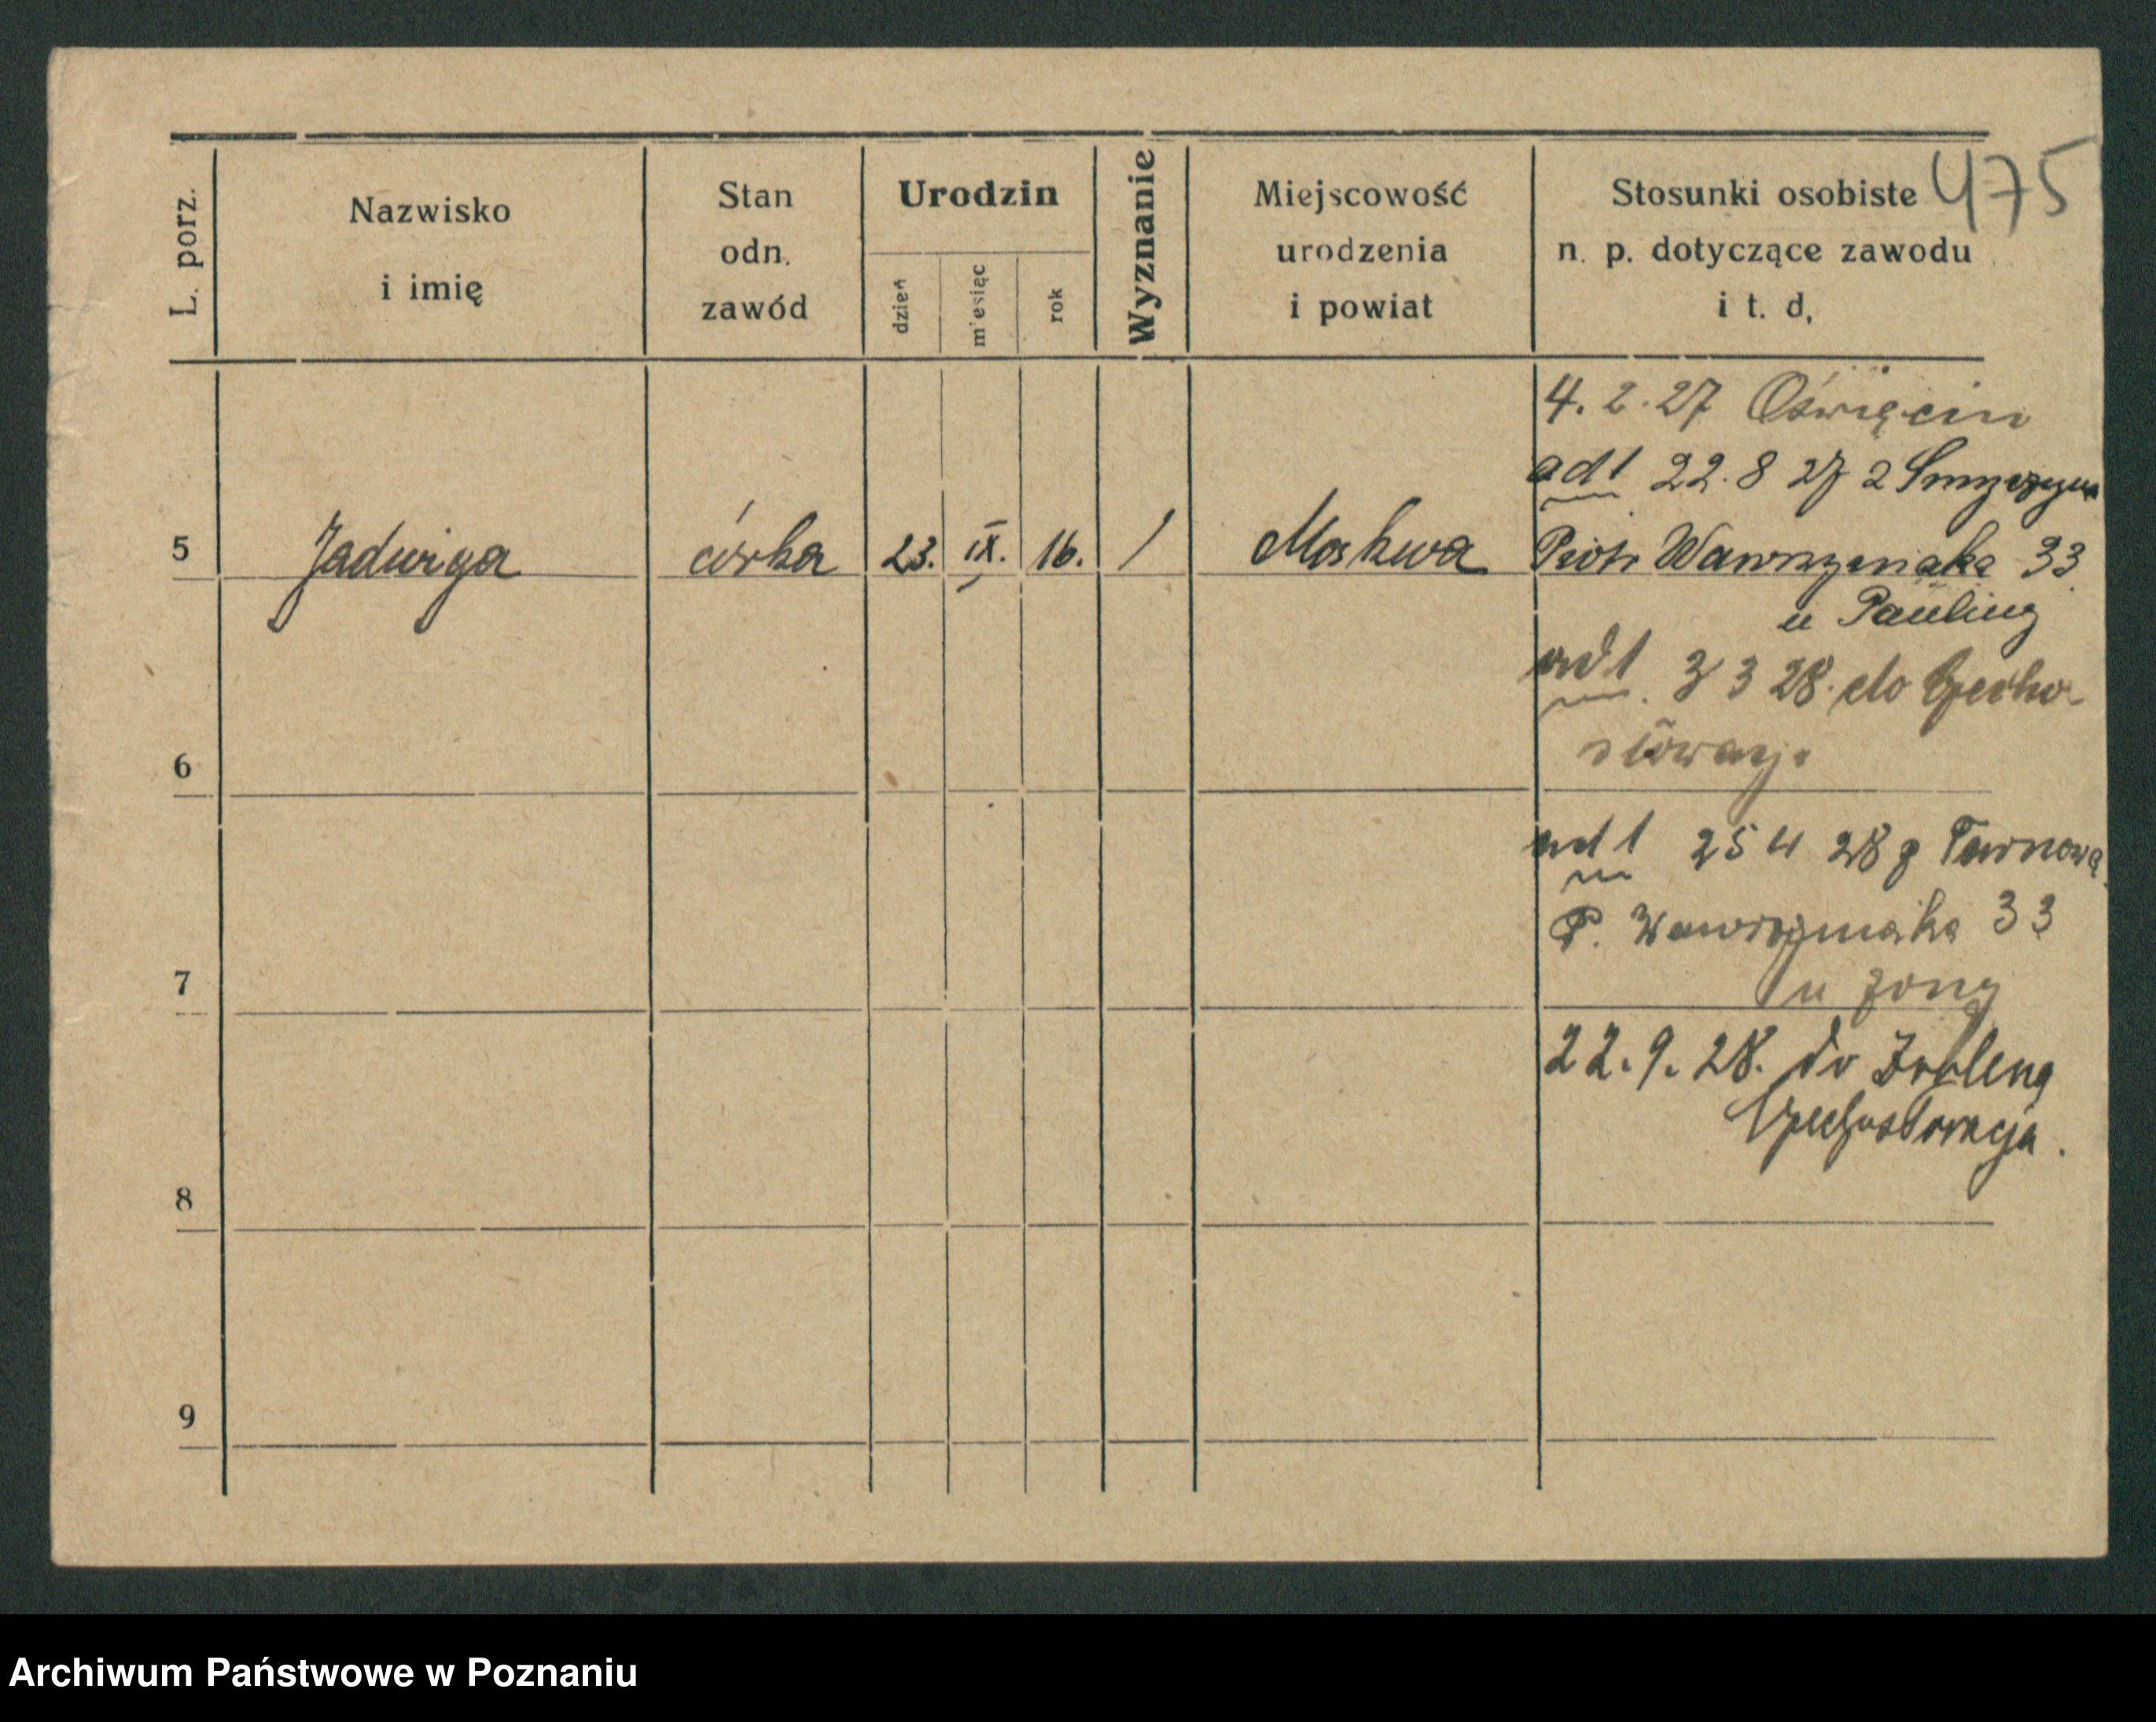 475
L. porz.
Nazwisko
i imię
Stan
odn.
zawód
Urodzin
dzień
miesiąc
rok
Wyznanie
Miejscowość
urodzenia
i powiat
Stosunki osobiste
n. p. dotyczące zawodu
i t. d,
5 Jadwiga córka 23. IX. 16. / Moskwa
4. 2. 27 Oświęcim
ad 1 22. 8 27 z
Piotr Wawrzyniaka 33
u Pauliny
ad 1 3 28. do Czecho-
słowacj.
6
ad 1 25 4 28 z Tarnowa
P. Wawrzyniaka 33
u żony
7
22. 9. 28. do
Czechosłowacja.
8
9
Archiwum Państwowe w Poznaniu